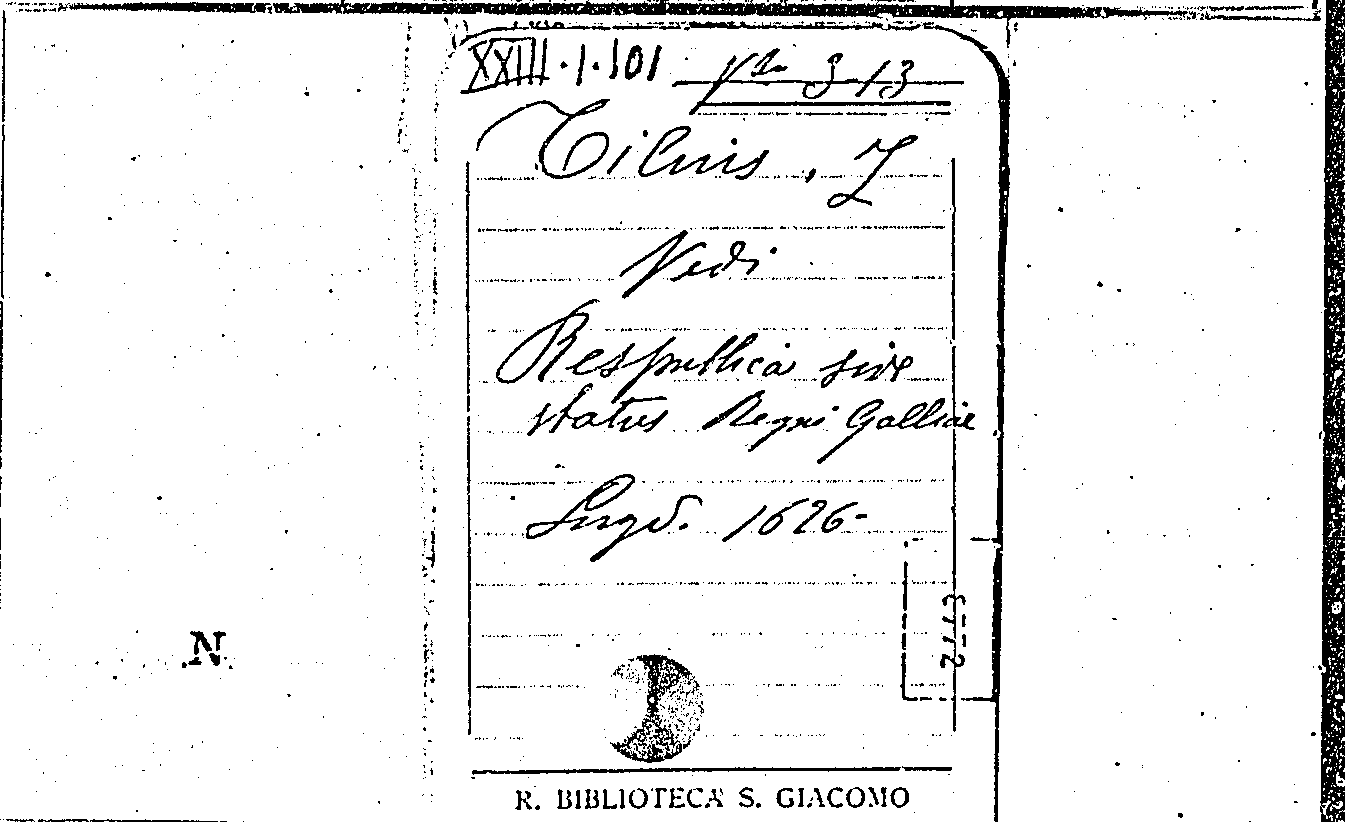 XXIII.1.101
Tilius, I
Vedi
Respublica sive
status Regni Galliae
Lugd. 1626-
3772
N.
R. BIBLIOTECA S. GIACOMO